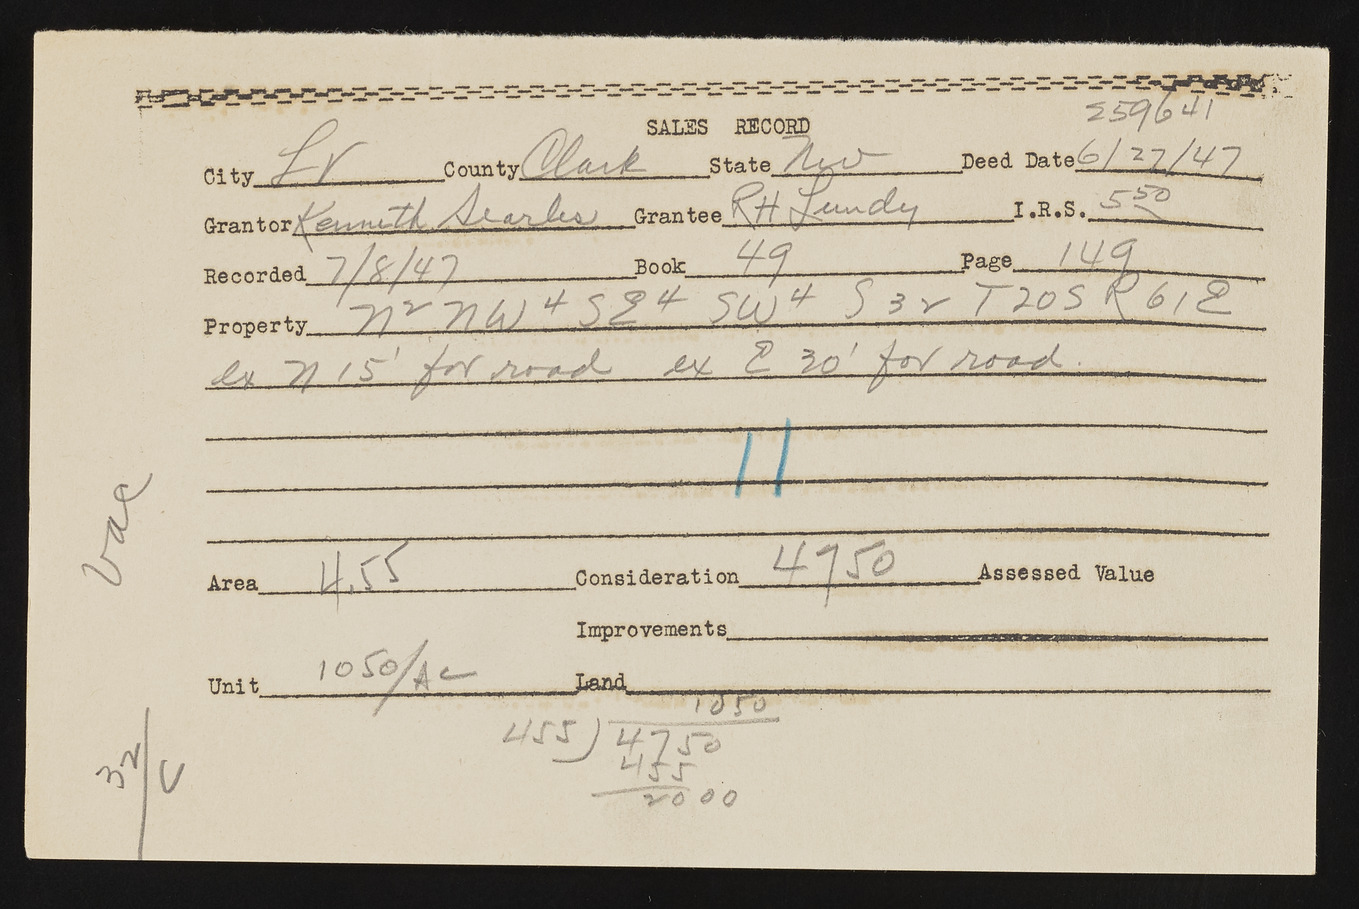 259641
SALES RECORD
City LV County Clark State Nev Deed Date 6/27/47
Grantor Kenneth Searles Grantee RH Lundy I.R.S. 5 50
Recorded 7/8/47 Book 49 Page 149
Property N2 NW4 SE4 SW4 S32 T20S R61E
ex N 15' for road ex E 30' for road.
11
Vac
Area 4.55 Consideration 4750 Assessed Value
Improvements
Unit 1050/Ac Land
1050
455) 4750
455
2000
32/C